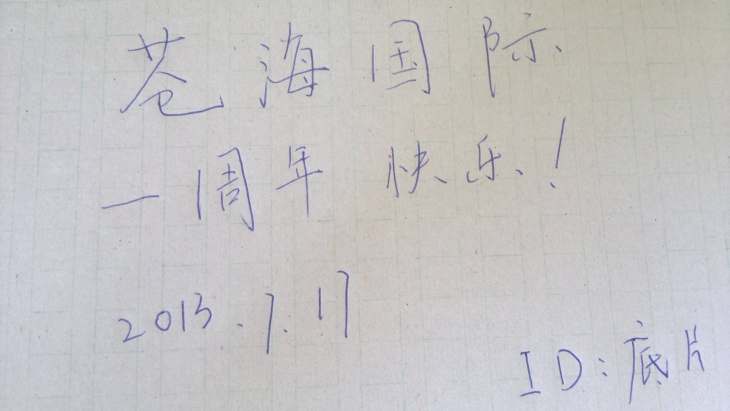 苍海国际
一周年 快乐!
2013.7.17
ID:底片